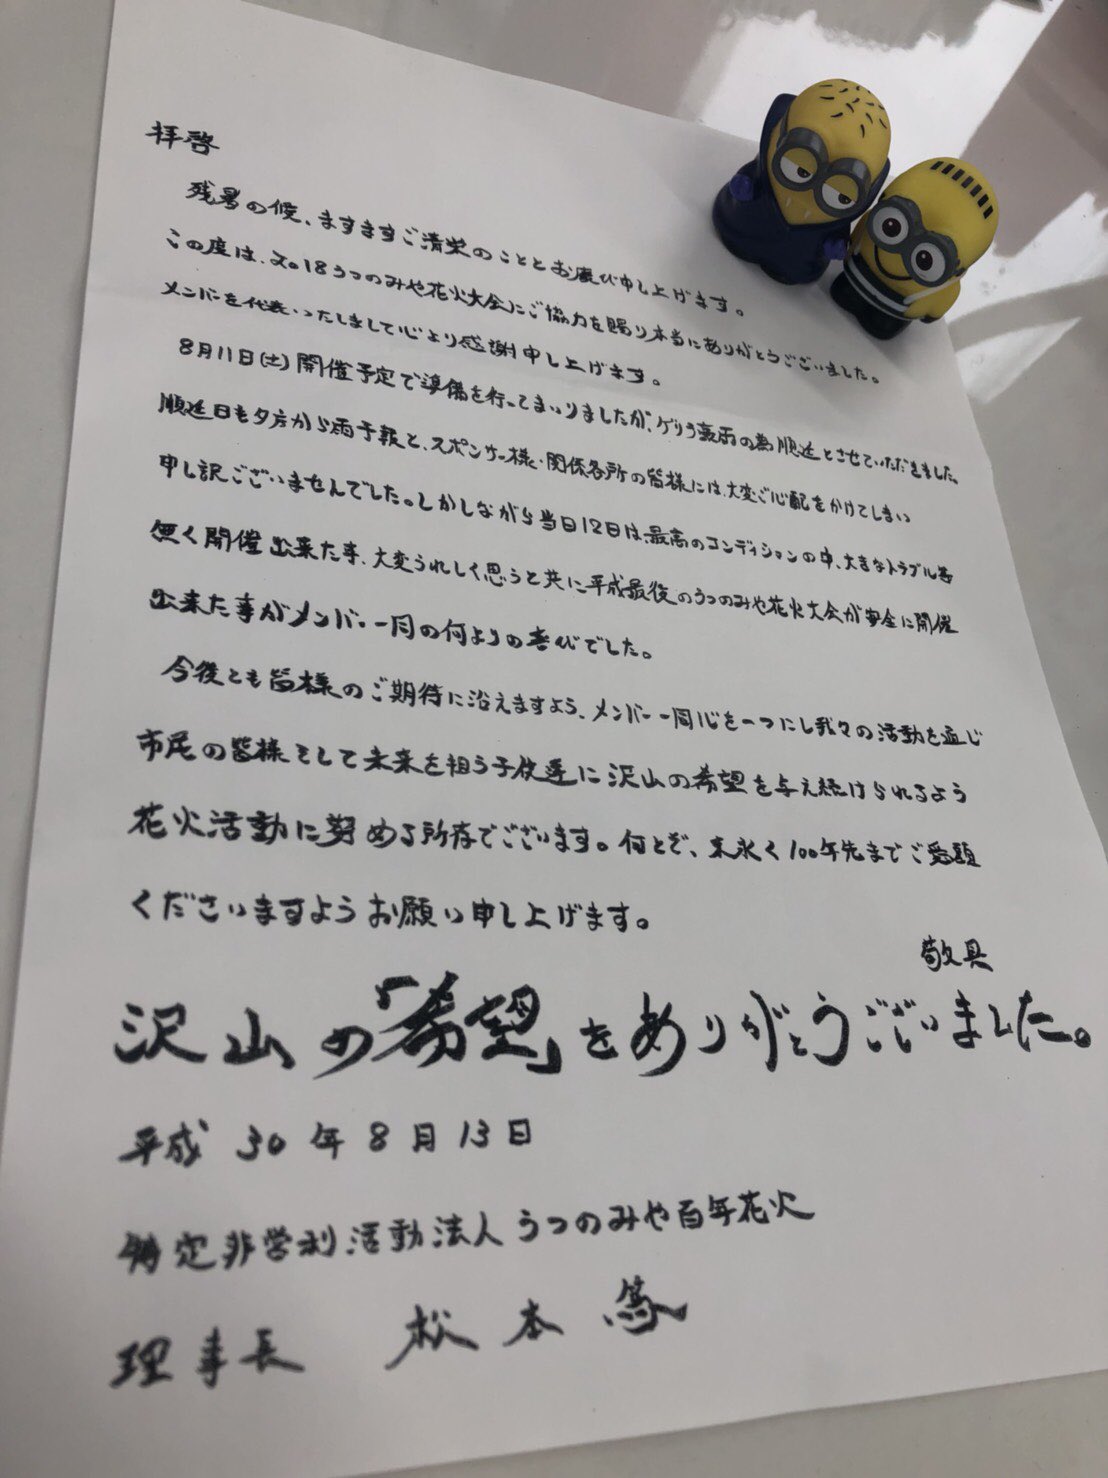 拝啓
残暑の候、ますますご清栄のこととお慶び申し上げます。
この度は、2018うつのみや花火大会にご協力を賜り本当にありがとうございました。
メンバーを代表いたしまして心より感謝申し上げます。
8月11日(土)開催予定で準備を行ってまいりましたが、ゲリラ豪雨の為順延とさせていただきました。
順延日も夕方から雨予報と、スポンサー様・関係各所の皆様には、大変ご心配をかけてしまい
申し訳ございませんでした。しかしながら当日12日は、最高のコンディションの中、大きなトラブル等
無く開催出来た事、大変うれしく思うと共に平成最後のうつのみや花火大会が安全に開催
出来た事がメンバー一同の何よりの喜びでした。
今後とも皆様のご期待に沿えますよう、メンバー一同心を一つにし我々の活動を通じ
市民の皆様そして未来を担う子供達に沢山の希望を与え続けられるよう
花火活動に努める所存でございます。何とぞ、末永く100年先までご愛顧
くださいますようお願い申し上げます。
敬具
沢山の「希望」をありがとうございました。
平成30年8月13日
特定非営利活動法人うつのみや百年花火
理事長 松本篤